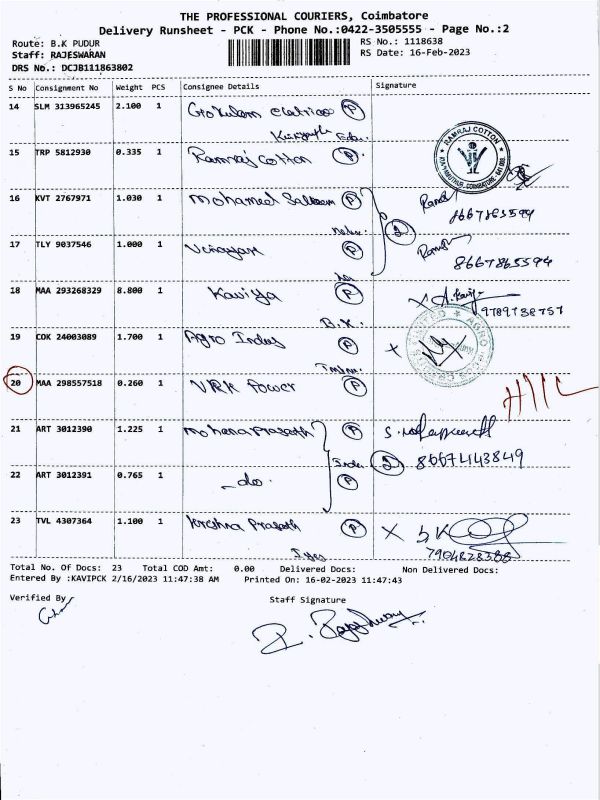 THE PROFESSIONAL COURIERS, Coimbatore
Delivery Runsheet - PCK - Phone No.:0422-3505555 - Page No.:2
Route: B.K PUDUR
RS No.: 1118638
Staff: RAJESWARAN
RS Date: 16-Feb-2023
DRS No.: DCJB111863802
S No Consignment No Weight PCS Consignee Details Signature
14 SLM 313965245 2.100 1 Gokulam P
15 TRP 5812930 0.335 1 Ramraj cotton P
RAMRAJ COTTON
16 KVT 2767971 1.030 1 Mohamed Saleem P
2 8667865594
17 TLY 9037546 1.000 1 Vinayaga P
8667865594
18 MAA 293268329 8.800 1 Kaviya P
B.K. 9789738757
19 COK 24003089 1.700 1 Agro Indus P
20 MAA 298557518 0.260 1 VRK Power P
21 ART 3012390 1.225 1 Mohana Prasath P
2 8667443849
22 ART 3012391 0.765 1 -do- P
23 TVL 4307364 1.100 1 Krishna Prasath P
7904828388
Total No. Of Docs: 23 Total COD Amt: 0.00 Delivered Docs: Non Delivered Docs:
Entered By :KAVIPCK 2/16/2023 11:47:38 AM Printed On: 16-02-2023 11:47:43
Verified By Staff Signature